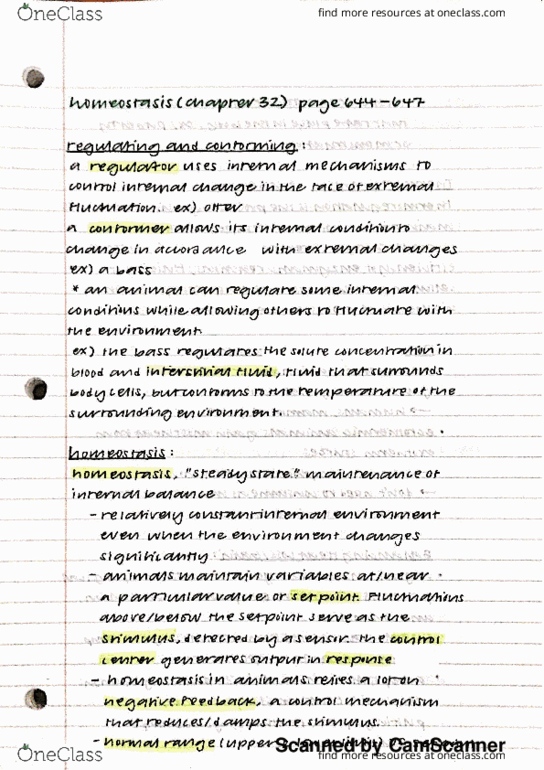 OneClass
find more resources at oneclass.com
homeostasis (chapter 32) page 644-647
regulating and conforming:
a regulator uses internal mechanisms to
control internal change in the face of external
fluctuation. ex) otter
a conformer allows its internal condition to
change in accordance with external changes
ex) a bass
* an animal can regulate some internal
conditions while allowing others to fluctuate with
the environment
ex) the bass regulates the solute concentration in
blood and interstitial fluid, fluid that surrounds
body cells, but conforms to the temperature of the
surrounding environment.
homeostasis:
homeostasis, "steady state" maintenance of
internal balance
- relatively constant internal environment
even when the environment changes
significantly
- animals maintain variables at/near
a particular value or setpoint. Fluctuations
above/below the setpoint serve as the
stimulus, detected by a sensor. the control
center generates output in response
- homeostasis in animals relies a lot on
negative feedback, a control mechanism
that reduces/damps the stimulus
- normal range (upper
Scanned by CamScanner
OneClass
find more resources at oneclass.com